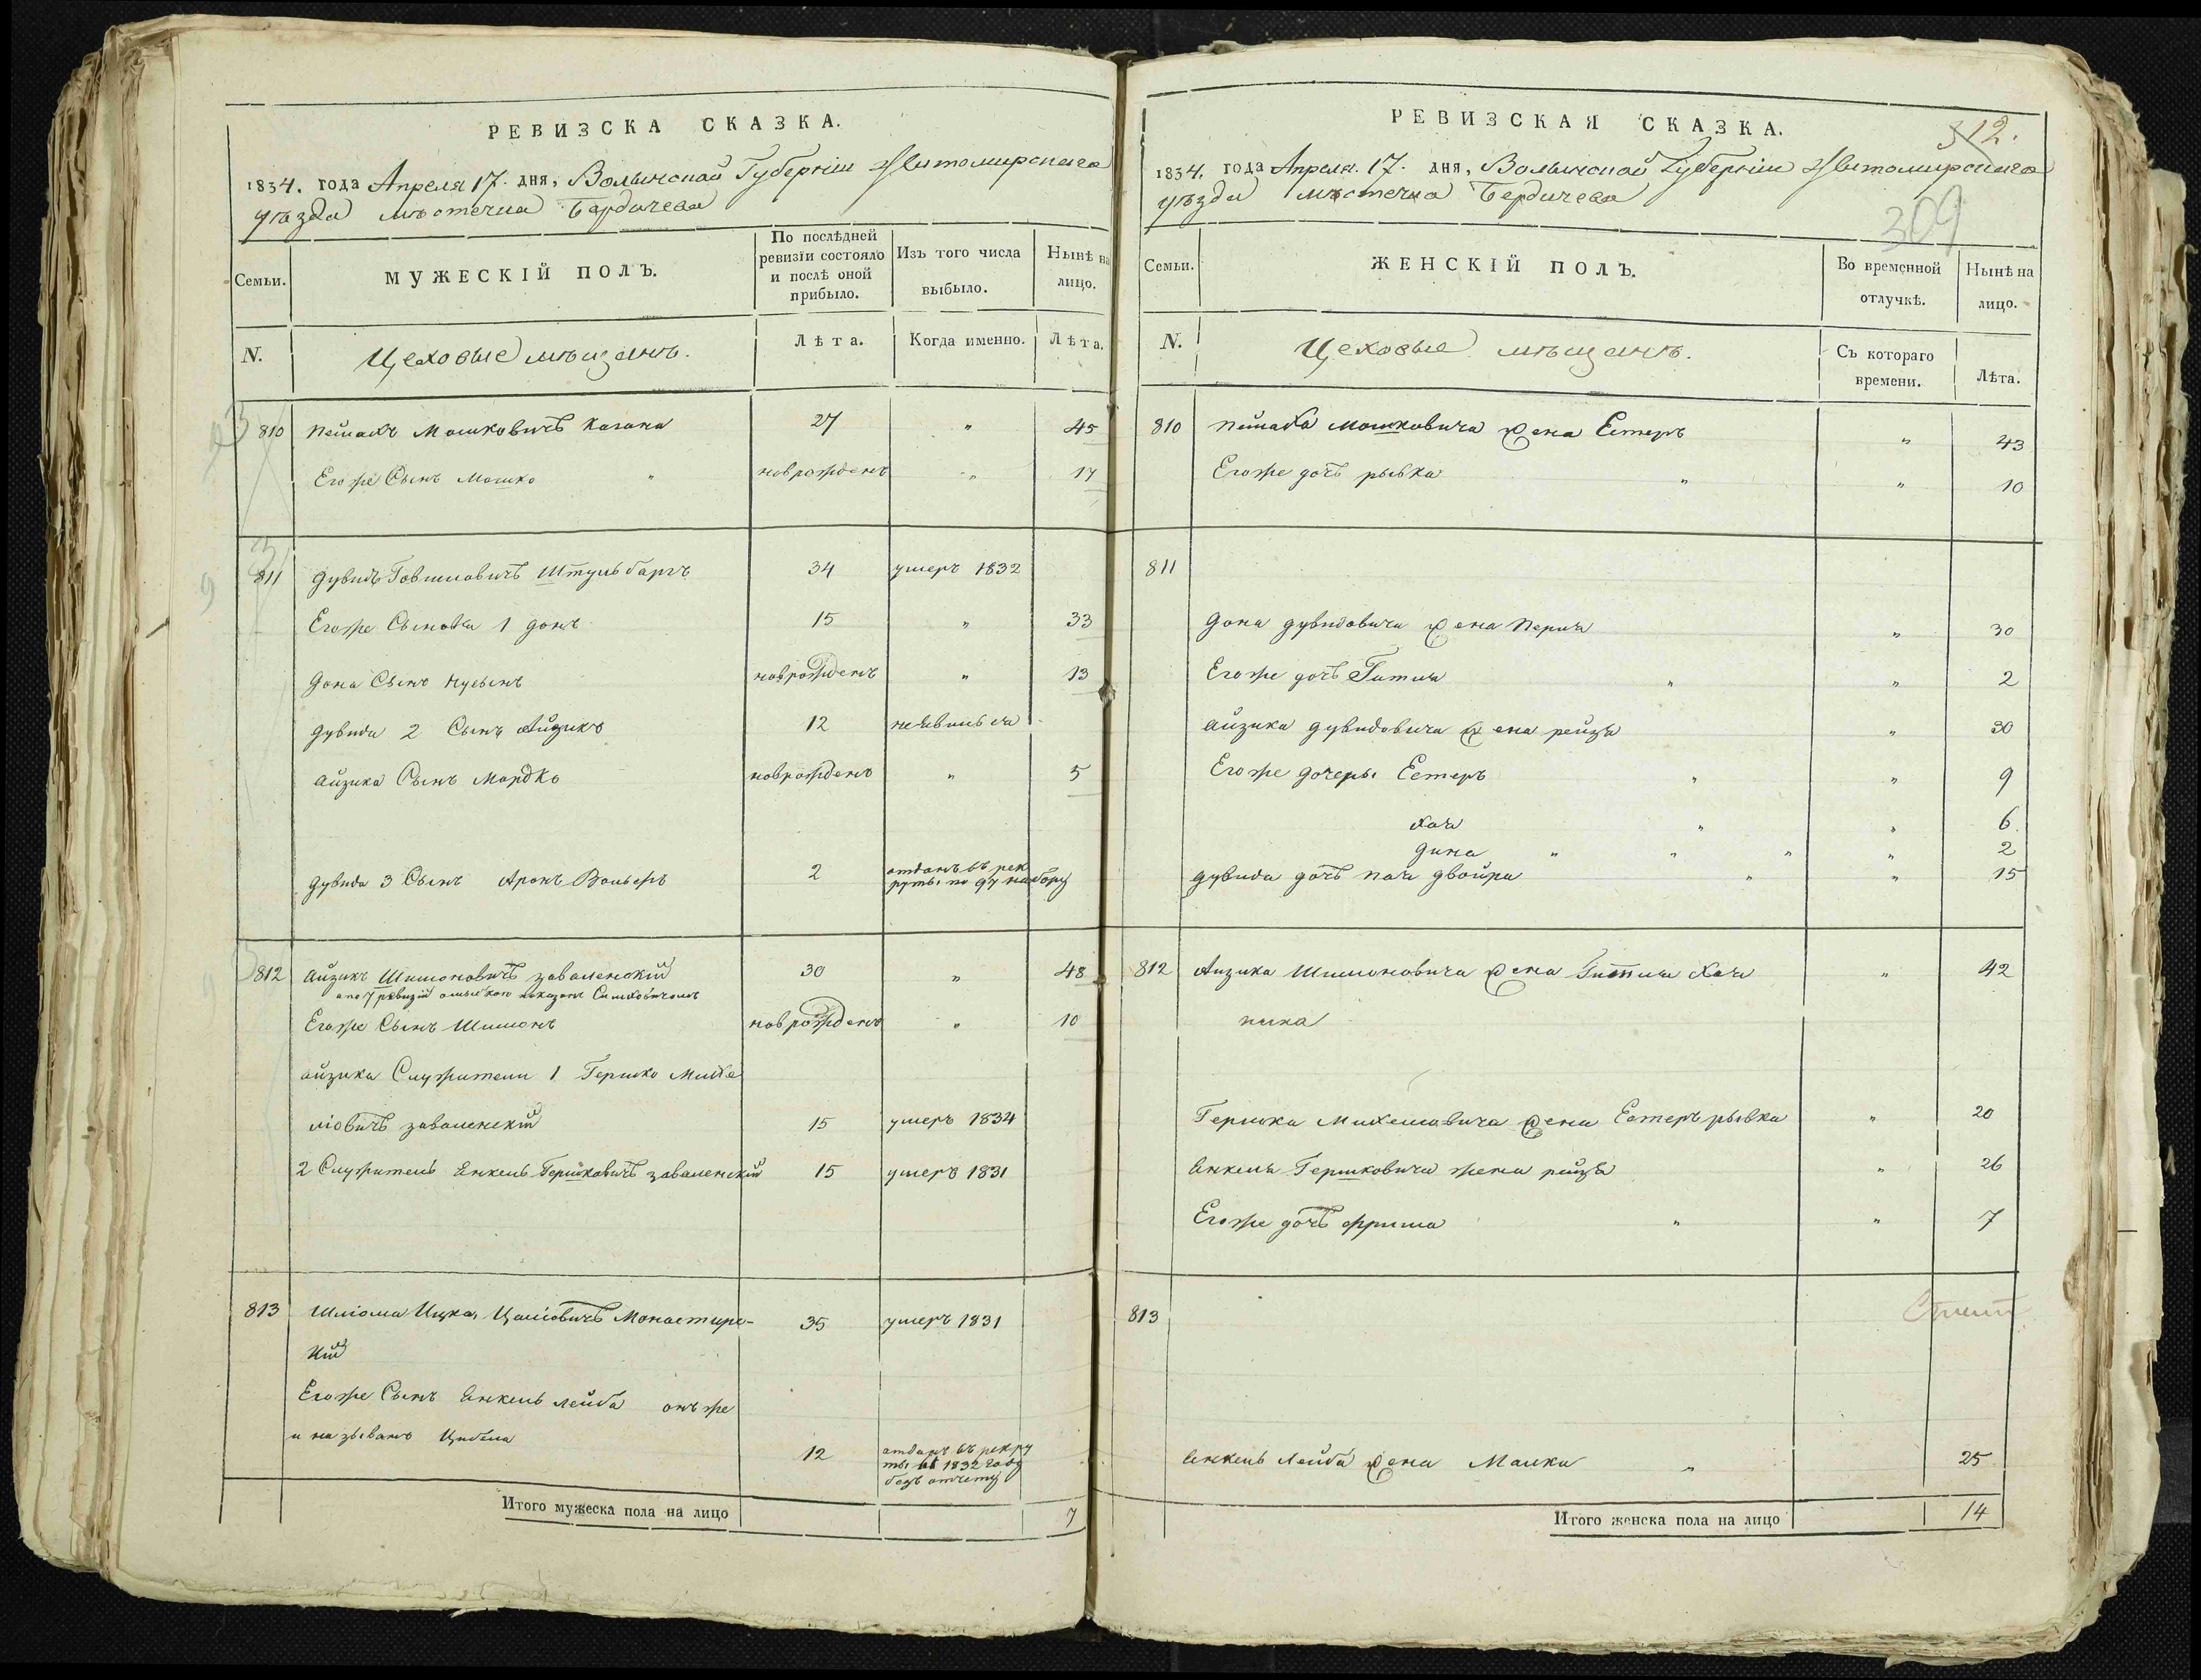 РЕВИЗСКА СКАЗКА.
1834. года Апреля 17. дня, Волынской Губернии Житомирскаго
уѣзда мѣстечка Бердичева
Семьи.
МУЖЕСКІЙ ПОЛЪ.
По послѣдней ревизіи состояло и послѣ оной прибыло.
Изъ того числа выбыло.
Нынѣ на лицо.
N.
Цеховые мѣщанъ.
Лѣта.
Когда именно.
Лѣта.
810 Пейсахъ Мошковичъ Кагана 27 " 45
Егоже Сынъ Мошко " новрожденъ " 17
811 Дувидъ Говшиовичъ Штульбаргъ 34 умеръ 1832
Егоже Сыновья 1 Донъ 15 " 33
Дона Сынъ Нусынъ новрожденъ " 13
Дувида 2 Сынъ Айзикъ 12 неявился
Айзика Сынъ Мордко новрожденъ " 5
Дувида 3 Сынъ Аронъ Вольфъ 2 отданъ въ рек
руты по 97 набору
812 Айзикъ Шимоновичъ Заваленскій 30 " 48
а по 7 ревизіи
Егоже Сынъ Шимонъ новрожденъ " 10
Айзика Служители 1 Гершко Михе
ліовичъ Заваленскій 15 умеръ 1834
2 Служитель Янкель Гершковичъ Заваленскій 15 умеръ 1831
813 Шліома Ицка Цаліовичъ Монастирс-
кій 35 умеръ 1831
Егоже Сынъ Янкель Лейба онъ же
и называнъ 12 отданъ въ рекру
ты въ 1832 году
безъ отчету
Итого мужеска пола на лицо 7
РЕВИЗСКАЯ СКАЗКА.
312.
1834. года Апреля. 17. дня, Волынской Губернии Житомирскаго
уѣзда мѣстечка Бердичева
309
Семьи.
ЖЕНСКІЙ ПОЛЪ.
Во временной отлучкѣ.
Нынѣ на лицо.
N.
Цеховые мѣщанъ.
Съ котораго времени.
Лѣта.
810 Пейсаха Мошковича жена Естеръ " 43
Егоже дочъ Рывка " " 10
811
Дона Дувидовича жена Перля " 30
Егоже дочъ Гитля " " 2
Айзика Дувидовича жена Рейзя " 30
Егоже дочеры Естеръ " " 9
Хая " " 6
Дина " " " " 2
Дувида дочъ Двойра " " 15
812 Айзика Шимоновича жена Гитля Хая " 42
Гершка Михелиовича жена Естеръ Рывка " 20
Янкеля Гершковича жена Рейзя " 26
Егоже дочъ Фрима " " 7
813
Янкель Лейба жена Малка " 25
Итого женска пола на лицо 14